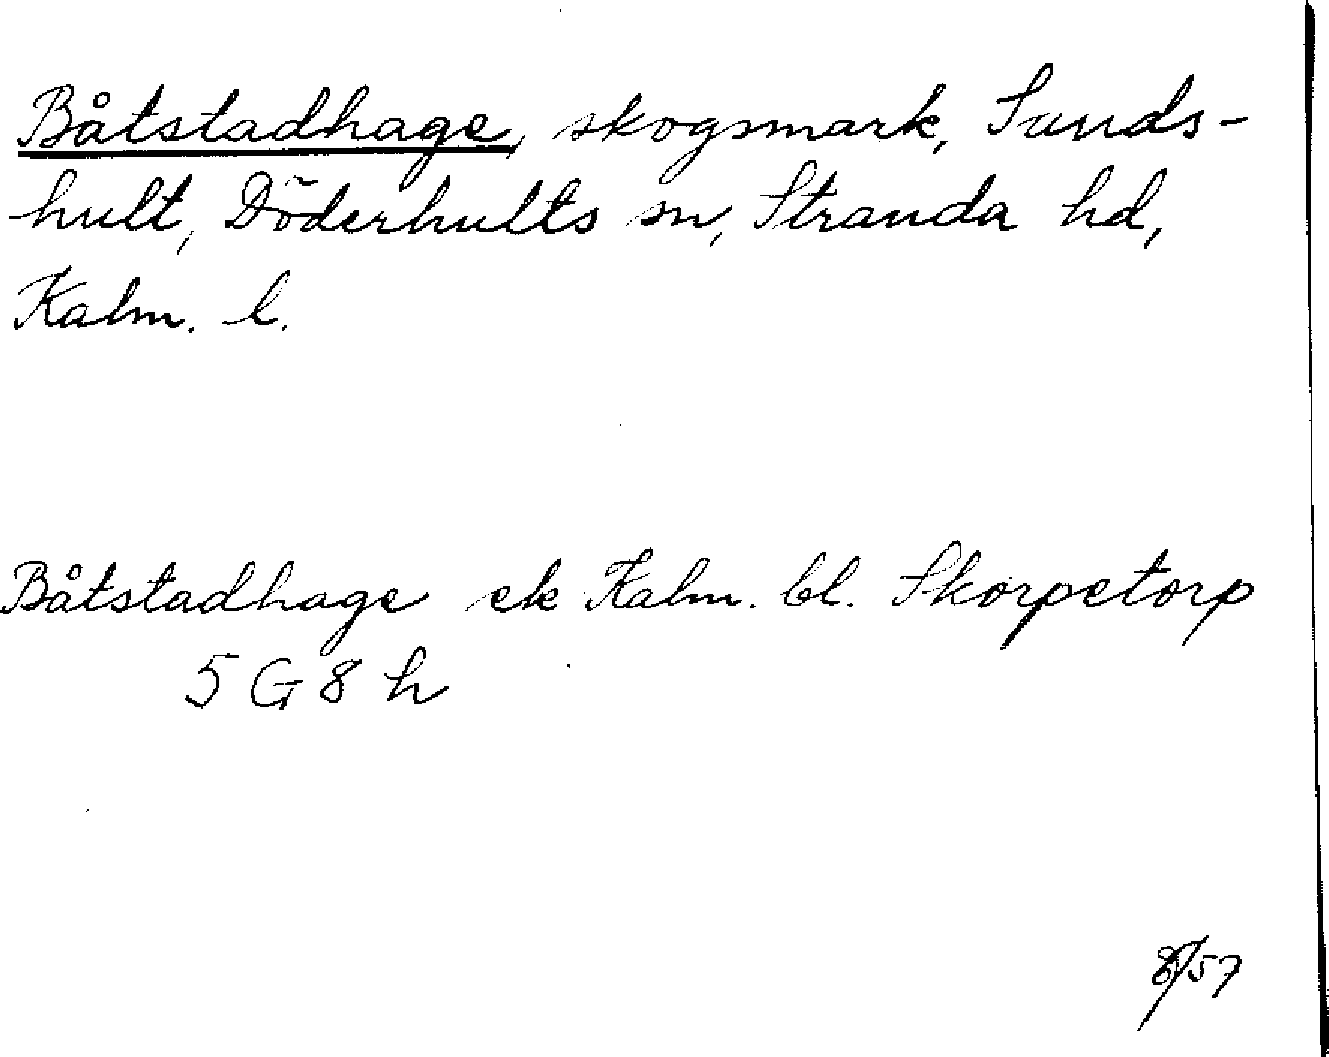 Båtstadhage, skogsmark, Sunds-
hult, Döderhults sn, Stranda hd,
Kalm. l.
Båtstadhage ek Kalm. bl. Skorpetorp
5 G 8 h
/57